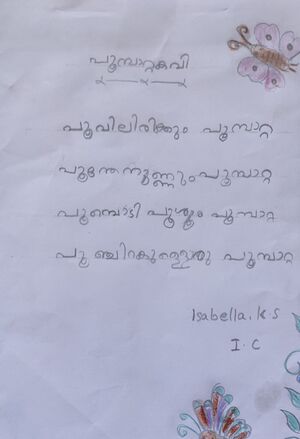 പൂമ്പാറ്റകവി
പൂവിലിരിക്കും പൂമ്പാറ്റ
പൂന്തേനുണ്ണും പൂമ്പാറ്റ
പൂമ്പൊടി പൂശും പൂമ്പാറ്റ
പൂഞ്ചിറകുള്ളൊരു പൂമ്പാറ്റ
Isabella. K S
I. C